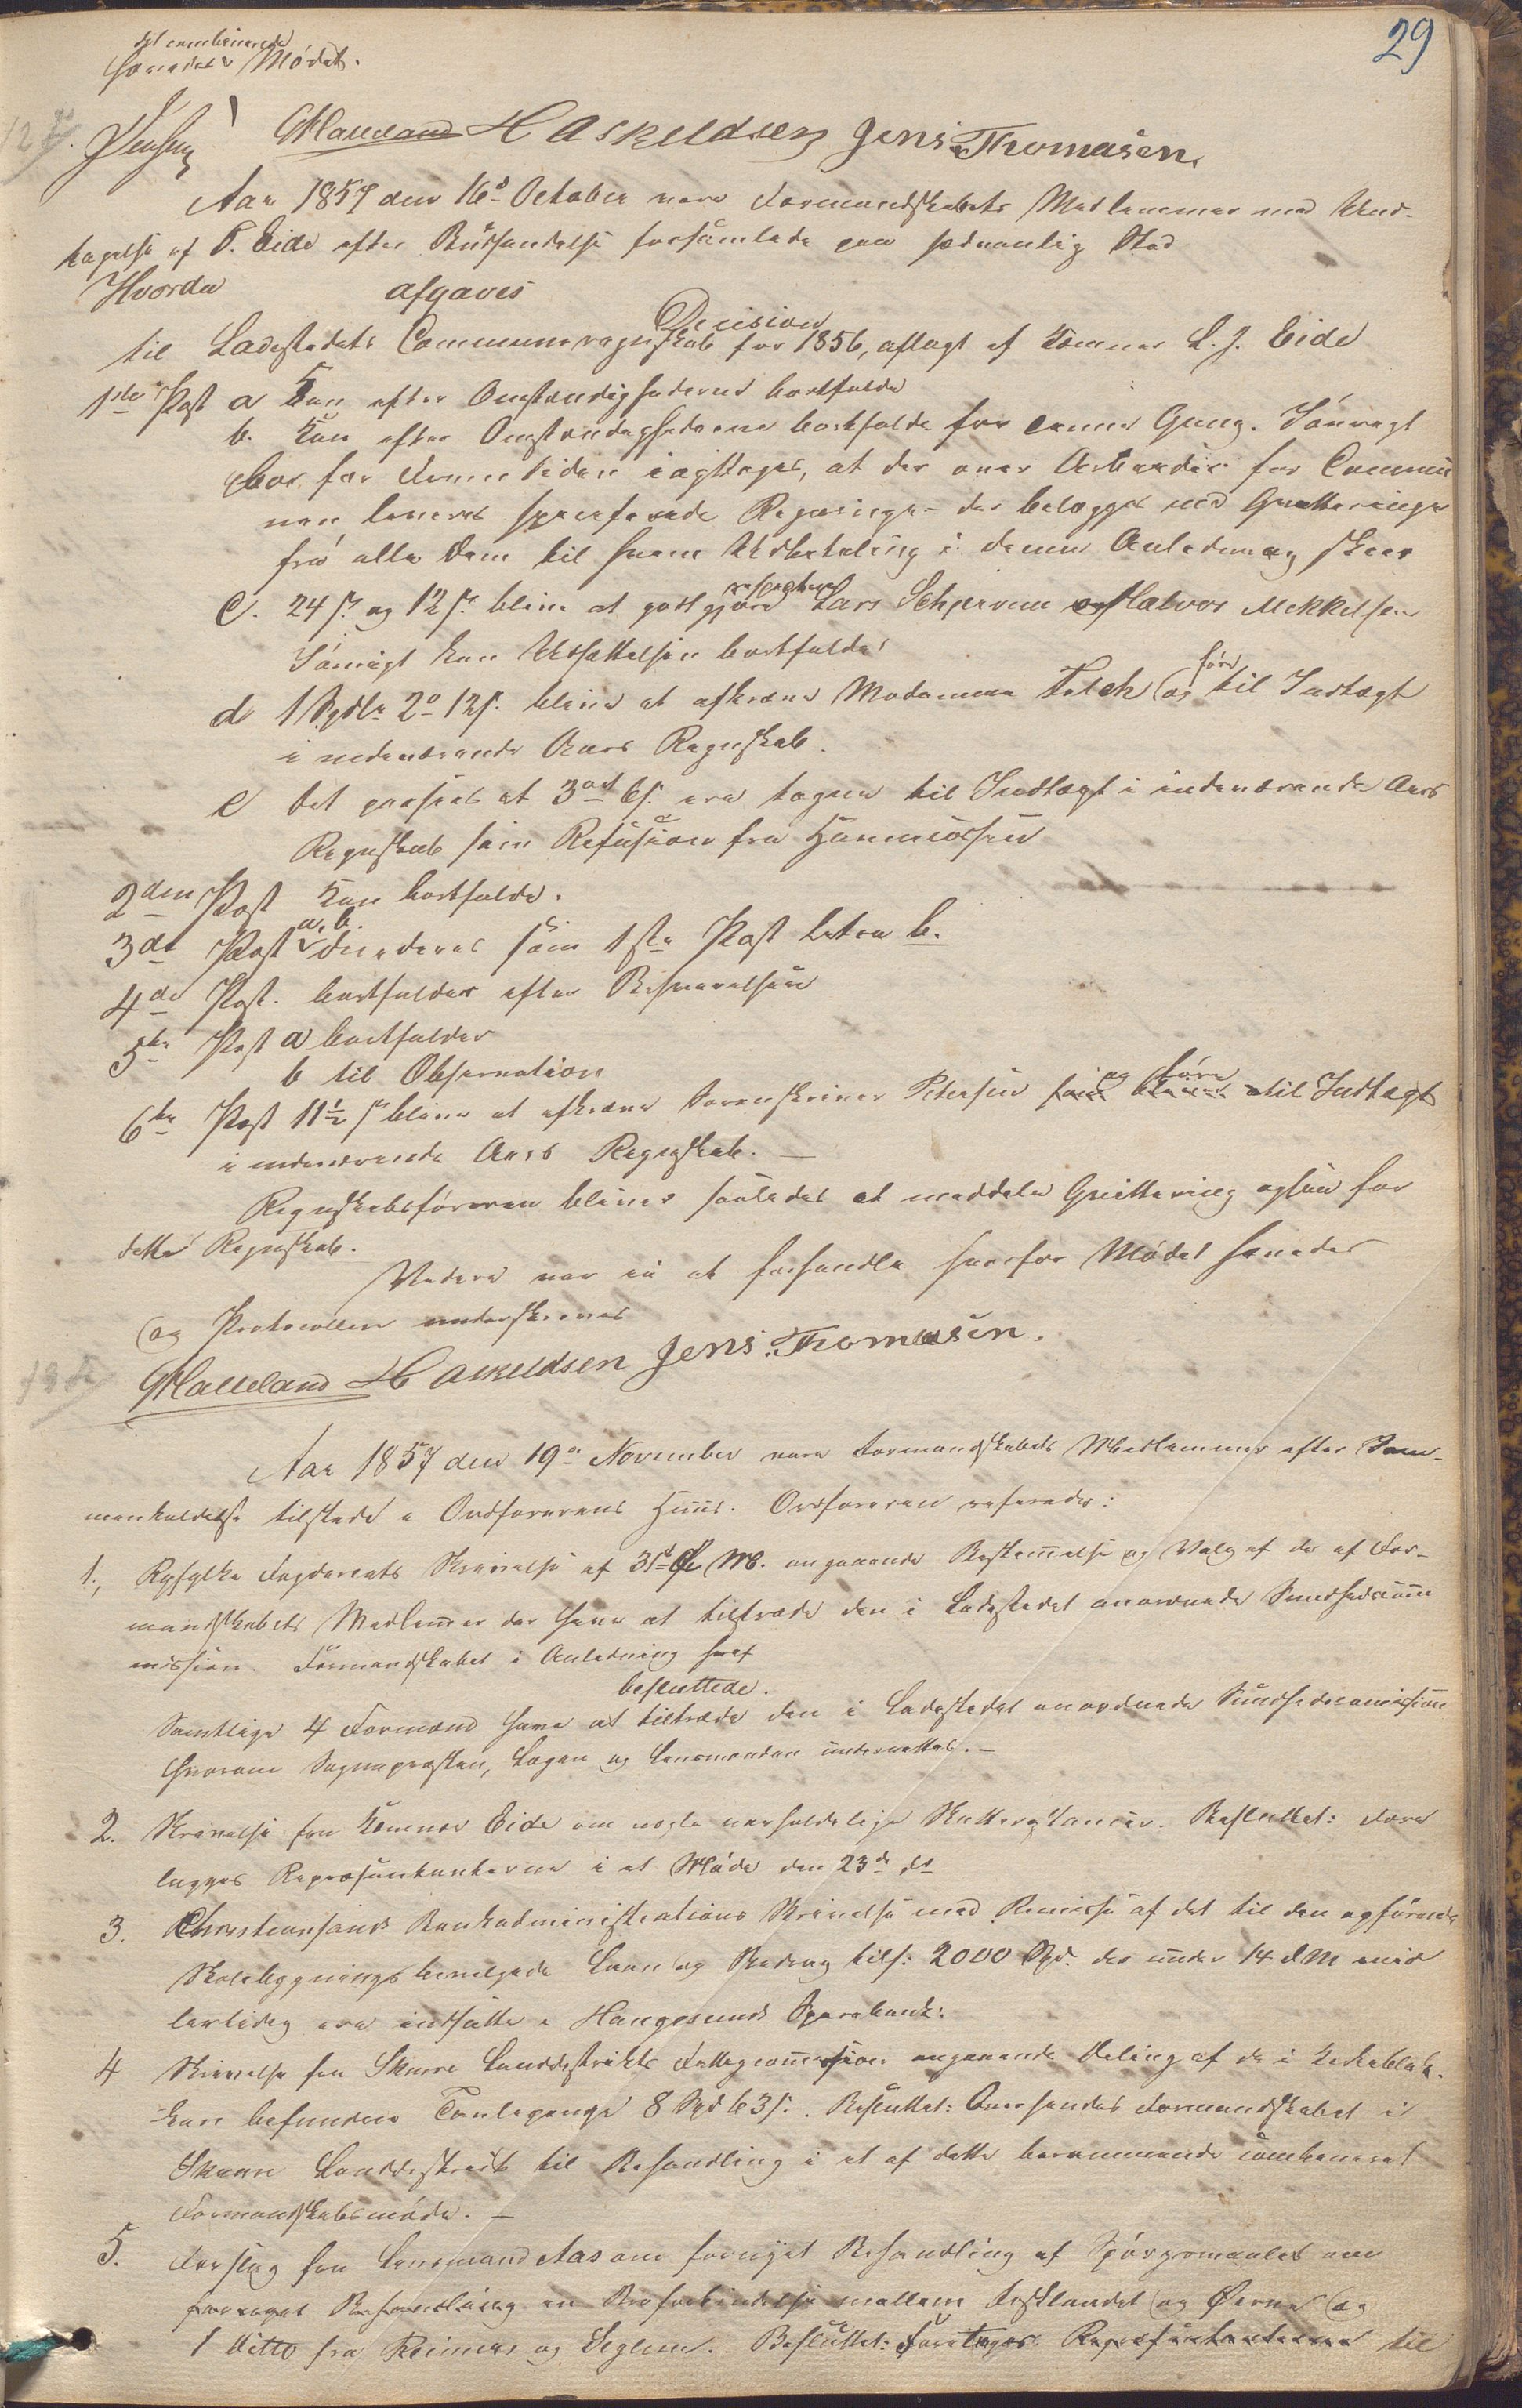 29
det combinerede
hævedes Mødet.
12te
Jensen GMalleland H Askeldsen Jens Thomasen
Aar 1857 den 16de October vare Formandskabets Medlemmer med Und-
tagelse af P. Eide efter Budsendelse forsamlede paa sædvanlig Sted
Hvorda afgaves
Decision
til Ladestedets Communeregnskab for 1856, aflagt af Kæmner L. J. Eide
1ste Post a Kan efter Omstændighederne bortfalde
b. Kan efter Omstændighederne bortfalde for denne Gang. Iøvrigt
bør for Fremtiden iagttages, at der over Arbeider for Commu
nen leveres specificerede Regninger der belægges med Qvitteringer
fra alle dem til hvem Udbetaling i denne Anledning skeer
c. 24 s. og 12 s. blive at godtgjøre respective Lars Schjerven og Halvor Mekkelsen
Iøvrigt kan Udsættelsen bortfalde
d 1 Spdlr 2o 12 s. blive at afkræve Madamme Falch og føre til Indtægt
i indeværende Aars Regnskab.
e Det paasees at 3 ort 6 s. ere tagne til Indtægt i indeværende Aars
Regnskab som Refusion fra
2den Post Kan bortfalde.
3die Post a, b. decideres som 1ste Post Litra b.
4de Post. bortfalder efter Besvarelsen
5te Post a bortfalder
b til Observation
6te Post 11½ s blive at afkræve Sorenskriver Petersen og føre til Indtægt
i indeværende Aars Regnskab. —
Regnskabsføreren bliver saaledes at meddele Qvittering ogsaa for
dette Regnskab.
Videre var ei at forhandle hvorfor Mødet hævedes
og Protocollen underskreves
13de
GMalleland H Askeldsen Jens Thomasen.
Aar 1857 den 19de November vare Formandskabets Medlemmer efter Sam-
menkaldelse tilstede i Ordførerens Huus. Ordføreren refererede:
1., Ryfylke Fogderiets Skrivelse af 31te f. M. angaaende Bestemmelse og Valg af de af For-
mandskabets Medlemmer der have at tiltræde den i Ladestedet anordnede Sundhedscom
mission. Formandskabet i Anledning heraf
besluttede.
Samtlige 4 Formænd have at tiltræde den i Ladestedet anordnede Sundhedscommission
hvorom Sognepræsten, Lægen og Lensmanden underrettes. —
2. Skrivelse fra Kæmner Eide om nogle uerholdelige Skatterestancer. Besluttet: Fore
lægges Repræsentanterne i et Møde den 23de ds
3. Christiansands Bankadministrations Skrivelse med Remisse af det til den opførende
Skolebygning bevilgede Laan og Bidrag tils: 2000 Spd. der under 14 d. M. mid
lertidig ere indsatte i Haugesunds Sparebank:
4 Skrivelse fra Skaare Landdistrikts Fattigcommission angaaende Deling af de i
befundne Tavlepenge 8 Spd 63 s. Besluttet: Oversendes Formandskabet i
Skaare Landdistrict til Behandling i et af dette berammende combineret
Formandskabsmøde. —
5. Forslag fra Lensmand Aas om fornyet Behandling af Spørgsmaalet om
Behandling en Broforbindelse mellem Fastlandet og Øerne og
1 Ditto fra Reimers og Seglem. Besluttet: Foretages Repræsentanterne til